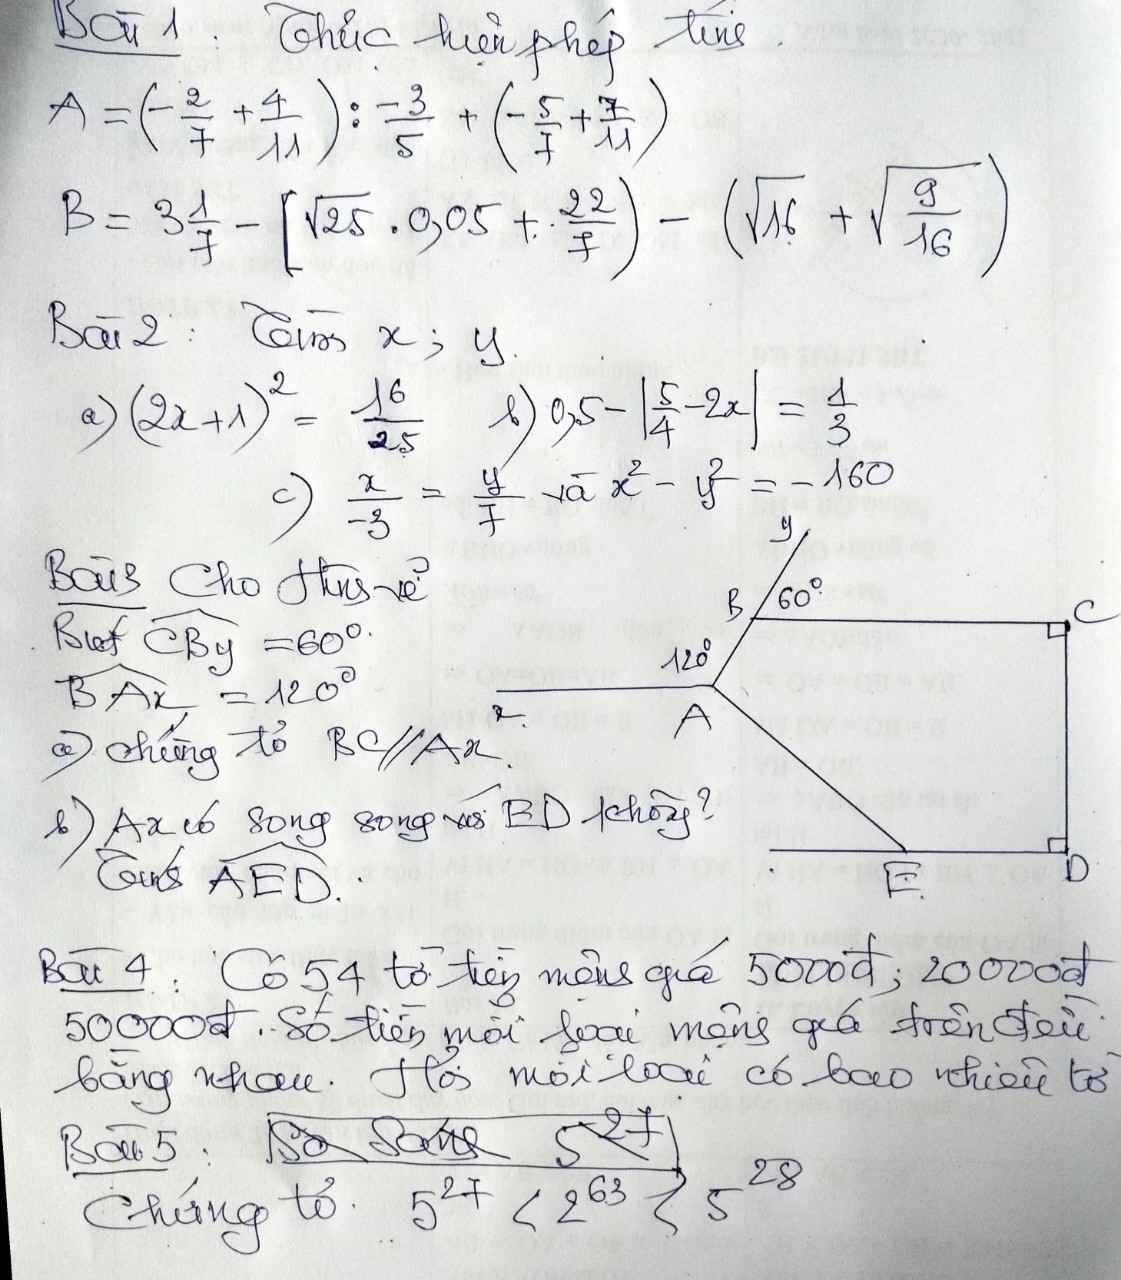 Bài 1 : Thực hiện phép tính
A = (-2/7 + 4/11) : -3/5 + (-5/7 + 7/11)
B = 3 1/7 - [√25 . 0,05 + 22/7) - (√16 + √(9/16))
Bài 2 : Tìm x ; y
a) (2x+1)² = 16/25 b) 0,5 - |5/4 - 2x| = 1/3
c) x/-3 = y/7 và x² - y² = -160
Bài 3 Cho Hình vẽ
Biết CBy = 60°.
BAx = 120°
a) chứng tỏ BC // Ax
b) Ax có song song với ED không?
Tính AED.
y
B 60° C
120°
x A
E D
Bài 4 : Có 54 tờ tiền mệnh giá 5000đ, 20000đ
50000đ. Số tiền mỗi loại mệnh giá trên đều
bằng nhau. Hỏi mỗi loại có bao nhiêu tờ
Bài 5 : So sánh 5^27
Chứng tỏ. 5^27 < 2^63 < 5^28